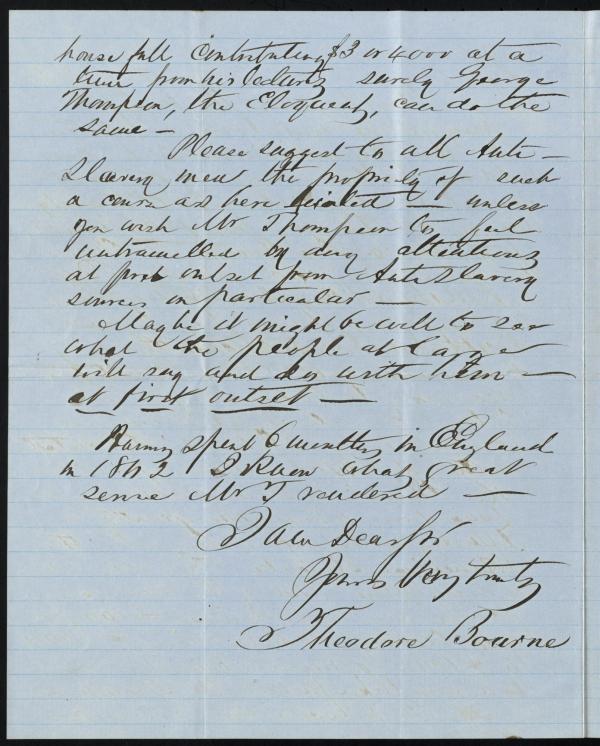 house full Contributing $3 or 4000 at a
time from his lectures surely George
Thompson, the Eloquent, can do the
same —
Please suggest to all Anti-
Slavery men the propriety of such
a course as here hinted — unless
you wish Mr Thompson to feel
untramelled by any attentions
at first outset from Anti Slavery
sources in particular —
Maybe it might be well to see
what the people at large
will say and do with him —
at first outset —
Having spent 6 months in England
in 1862 I know what great
service Mr T rendered —
I am Dear Sir
Yours Very truly
Theodore Bourne